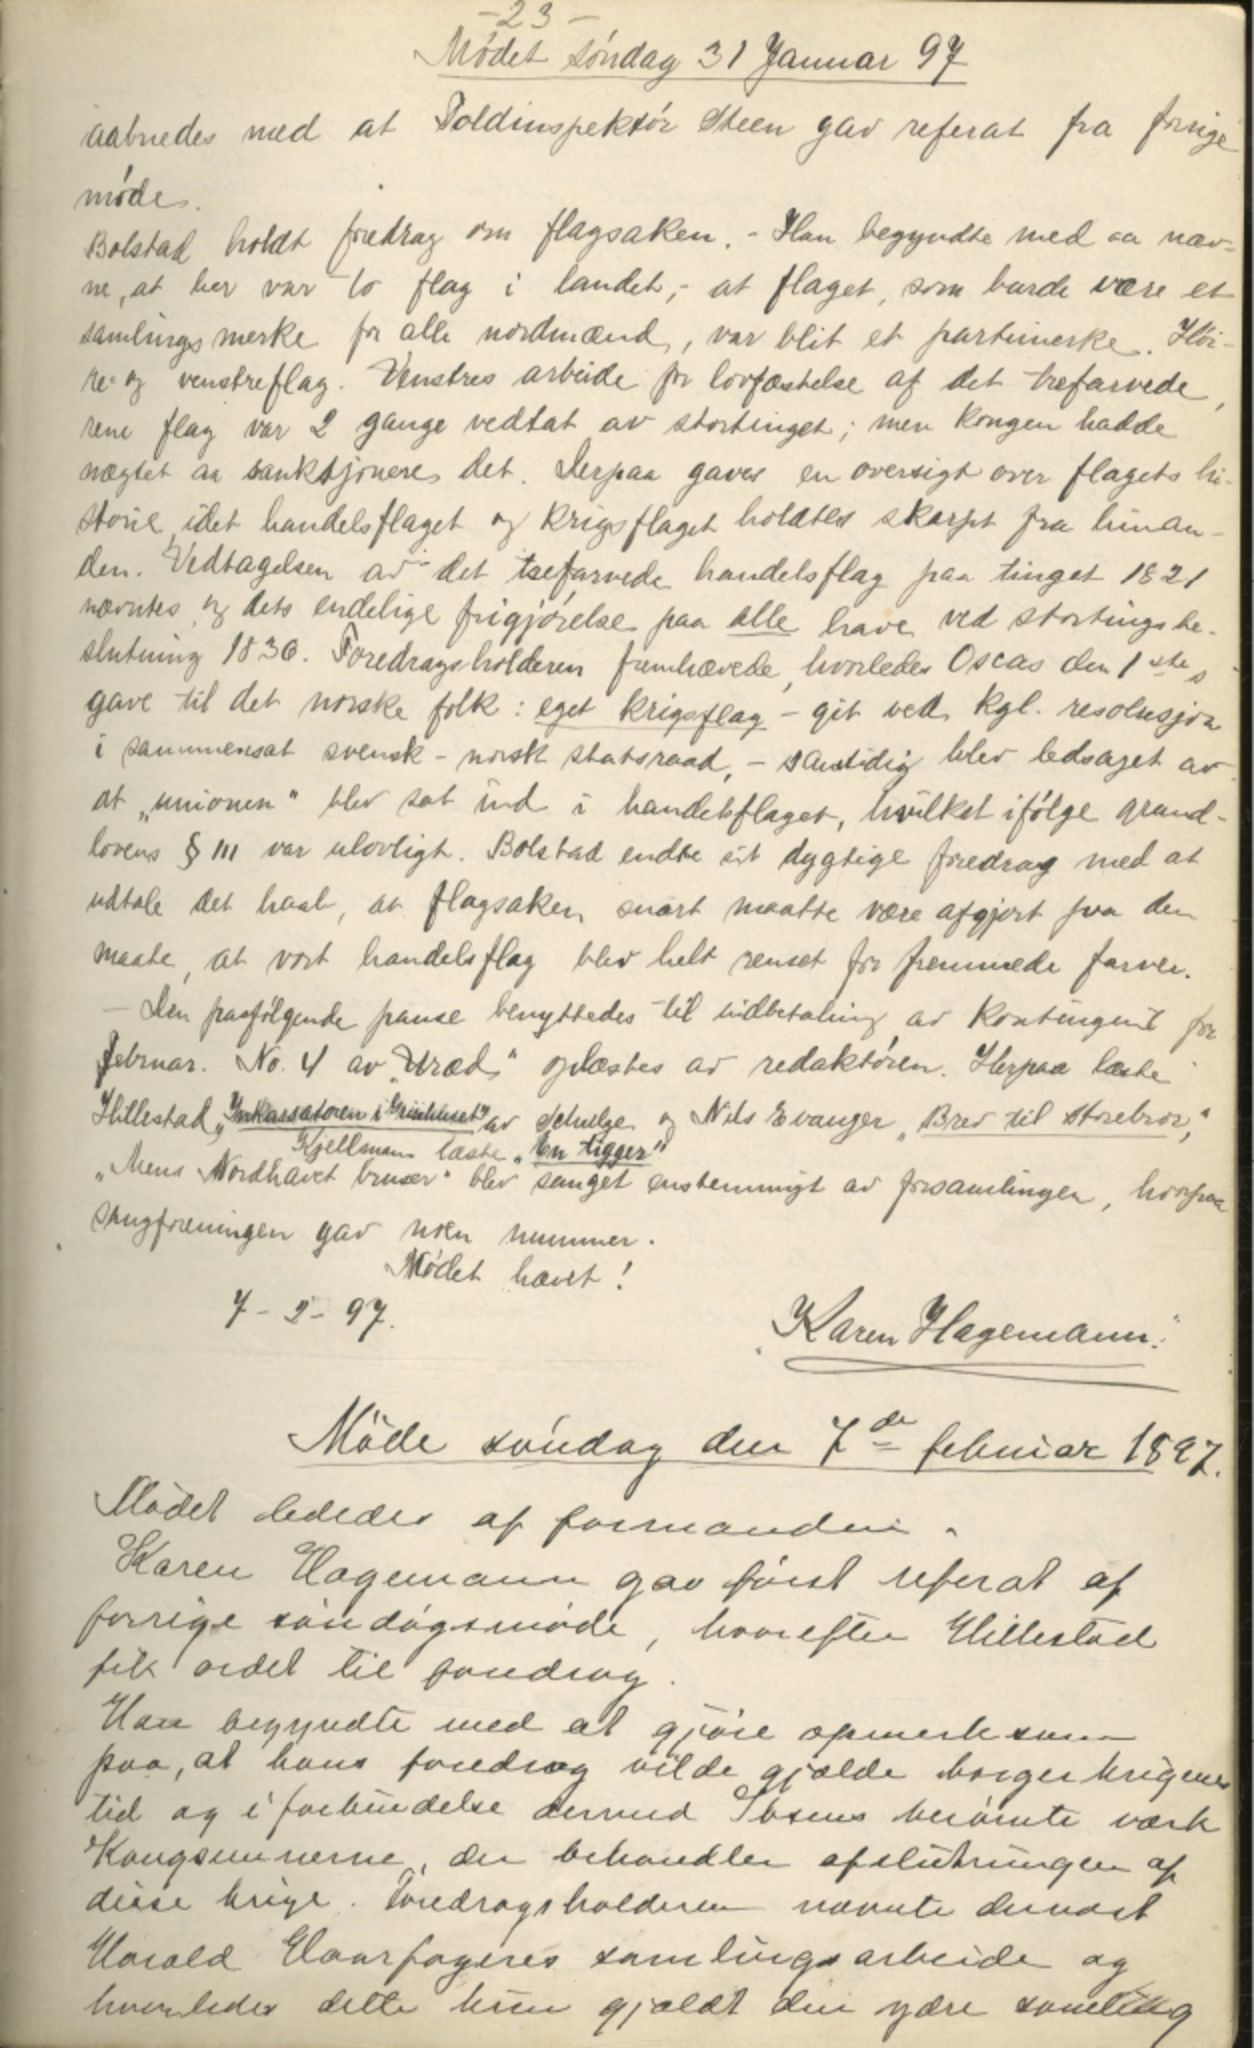 -23-
Mødet søndag 31 Januar 97
aabnedes med at Toldinspektør Steen gav referat fra forrige
møde.
Bolstad holdt foredrag om flagsaken. - Han begyndte med aa næv-
ne, at her var to flag i landet, - at flaget, som burde være et
samlingsmerke for alle nordmænd, var blit et partimerke. Høi-
re- og venstreflag. Venstres arbeide for lovfæstelse af det trefarvede,
rene flag var 2 gange vedtat av stortinget; men kongen hadde
nægtet aa sanktjonere det. Derpaa gaves en oversigt over flagets hi-
storie, idet handelsflaget og krigsflaget holdtes skarpt fra hinan-
den. Vedtagelsen av det trefarvede handelsflag paa tinget 1821
nævntes, og dets endelige frigjørelse paa alle have ved stortingsbe-
slutning 1836. Foredragsholderen fremhævede, hvorledes Oscar den 1stes
gave til det norske folk: eget krigsflag - git ved kgl. resolusjon
i sammensat svensk-norsk statsraad, - samtidig blev ledsaget av
at „unionen" blev sat ind i handelsflaget, hvilket ifølge grund-
lovens § 111 var ulovligt. Bolstad endte sit dygtige foredrag med at
udtale det haab, at flagsaken snart maatte være afgjort paa den
maate, at vort handelsflag blev helt renset for fremmede farver.
- Den paafølgende pause benyttedes til indbetaling av kontingent for
februar. No. 4 av „Uræd" oplæstes av redaktøren. Herpaa læste
Hillestad „Inkassatoren i Grishuset" av Schulze og Nils Evanger „Brev til storebror,"
Kjellman læste „En tigger"
„Mens Nordhavet bruser" blev sunget enstemmigt av forsamlingen, hvorpaa
sangforeningen gav noen nummer.
Mødet hævet!
7-2-97.
Karen Hagemann.
Møde søndag den 7de februar 1897.
Mødet lededes af formanden.
Karen Hagemann gav først referat af
forrige søndagsmøde, hvorefter Hillestad
fik ordet til foredrag.
Han begyndte med at gjøre opmerksom
paa, at hans foredrag vilde gjælde borgerkrigenes
tid og i forbindelse dermed Ibsens berømte værk
Kongsemnerne, der behandler afslutningen af
disse krige. Foredragsholderen nævnte dernæst
Harald Haarfageres samlingsarbeide og
hvorledes dette kun gjældt den ydre samling